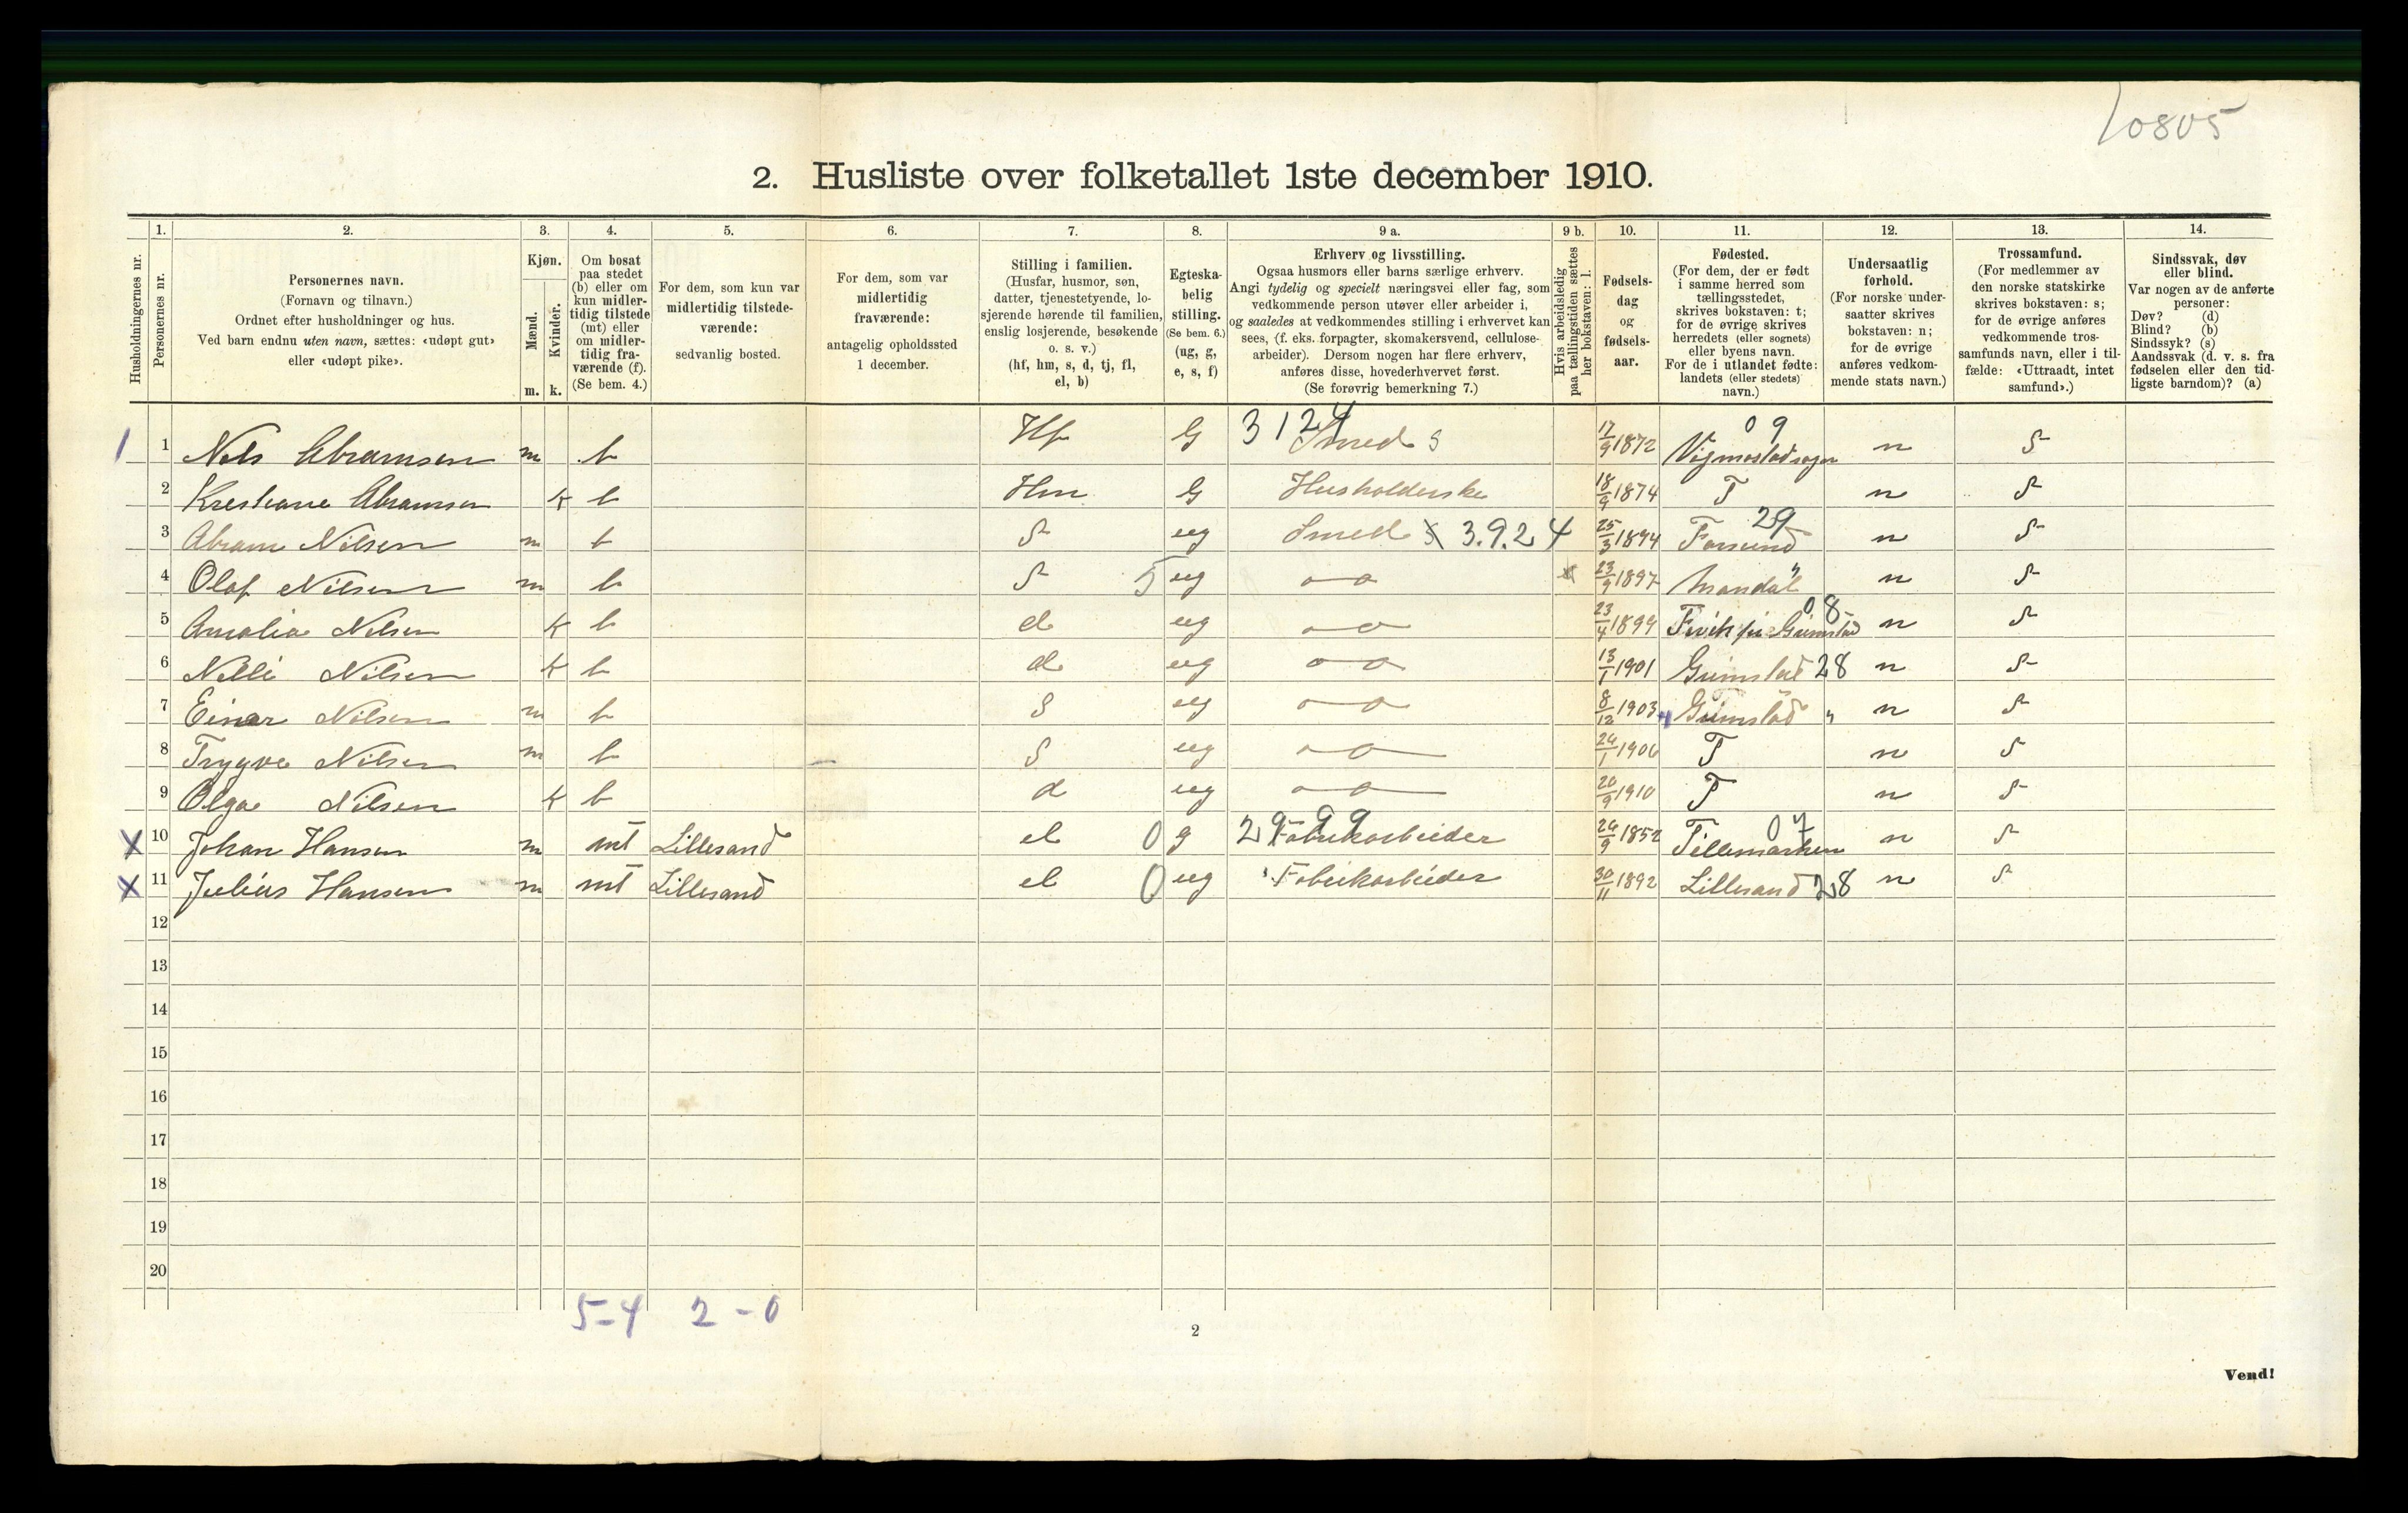 10805
2. Husliste over folketallet 1ste december 1910.
Husholdningernes nr.
1. Personernes nr.
2. Personernes navn.
(Fornavn og tilnavn.)
Ordnet efter husholdninger og hus.
Ved barn endnu uten navn, sættes: «udøpt gut»
eller «udøpt pike».
3. Kjøn.
Mænd. m.
Kvinder. k.
4. Om bosat
paa stedet
(b) eller om
kun midler-
tidig tilstede
(mt) eller
om midler-
tidig fra-
værende (f).
(Se bem. 4.)
5. For dem, som kun var
midlertidig tilstede-
værende:
sedvanlig bosted.
6. For dem, som var
midlertidig
fraværende:
antagelig opholdssted
1 december.
7. Stilling i familien.
(Husfar, husmor, søn,
datter, tjenestetyende, lo-
sjerende hørende til familien,
enslig losjerende, besøkende
o. s. v.)
(hf, hm, s, d, tj, fl,
el, b)
8. Egteska-
belig
stilling.
(Se bem. 6.)
(ug, g,
e, s, f)
9 a. Erhverv og livsstilling.
Ogsaa husmors eller barns særlige erhverv.
Angi tydelig og specielt næringsvei eller fag, som
vedkommende person utøver eller arbeider i,
og saaledes at vedkommendes stilling i erhvervet kan
sees, (f. eks. forpagter, skomakersvend, cellulose-
arbeider). Dersom nogen har flere erhverv,
anføres disse, hovederhvervet først.
(Se forøvrig bemerkning 7.)
9 b. Hvis arbeidsledig
paa tællingstiden sættes
her bokstaven: l.
10. Fødsels-
dag
og
fødsels-
aar.
11. Fødested.
(For dem, der er født
i samme herred som
tællingsstedet,
skrives bokstaven: t;
for de øvrige skrives
herredets (eller sognets)
eller byens navn.
For de i utlandet fødte:
landets (eller stedets)
navn.)
12. Undersaatlig
forhold.
(For norske under-
saatter skrives
bokstaven: n;
for de øvrige
anføres vedkom-
mende stats navn.)
13. Trossamfund.
(For medlemmer av
den norske statskirke
skrives bokstaven: s;
for de øvrige anføres
vedkommende tros-
samfunds navn, eller i til-
fælde: «Uttraadt, intet
samfund».)
14. Sindssvak, døv
eller blind.
Var nogen av de anførte
personer:
Døv? (d)
Blind? (b)
Sindssyk? (s)
Aandssvak (d. v. s. fra
fødselen eller den tid-
ligste barndom)? (a)
1 1 Nels Abramsen m b Hf G 3124 Smed s 17/9 1872 09 Vigmostadsogn n S
2 Krestiane Abramsen k b Hm G Husholderske 18/9 1874 T n S
3 Abram Nilsen m b S ug Smed 3.9.24 25/3 1894 29 Farsund n S
4 Olaf Nilsen m b S 5 ug 23/9 1897 Mandal " n S
5 Amalia Nilsen k b d ug 23/4 1899 08 Fevik pr Grimstad n S
6 Nelli Nilsen k b d ug 13/1 1901 Grimstad 28 n S
7 Einar Nilsen m b S ug 8/12 1903 Grimstad " n S
8 Trygve Nilsen m b S ug 1906 T n S
9 Olga Nilsen k b d ug 20/9 1910 T n S
X 10 Johan Hansen m mt Lillesand el 0 g 2999 Fabrikarbeider 1852 07 Tellemarken n S
X 11 Julius Hansen m mt Lillesand el 0 ug Fabrikarbeider 30/11 1892 Lillesand 28 n S
12
13
14
15
16
17
18
19
20
5-4 2-0
2
Vend!